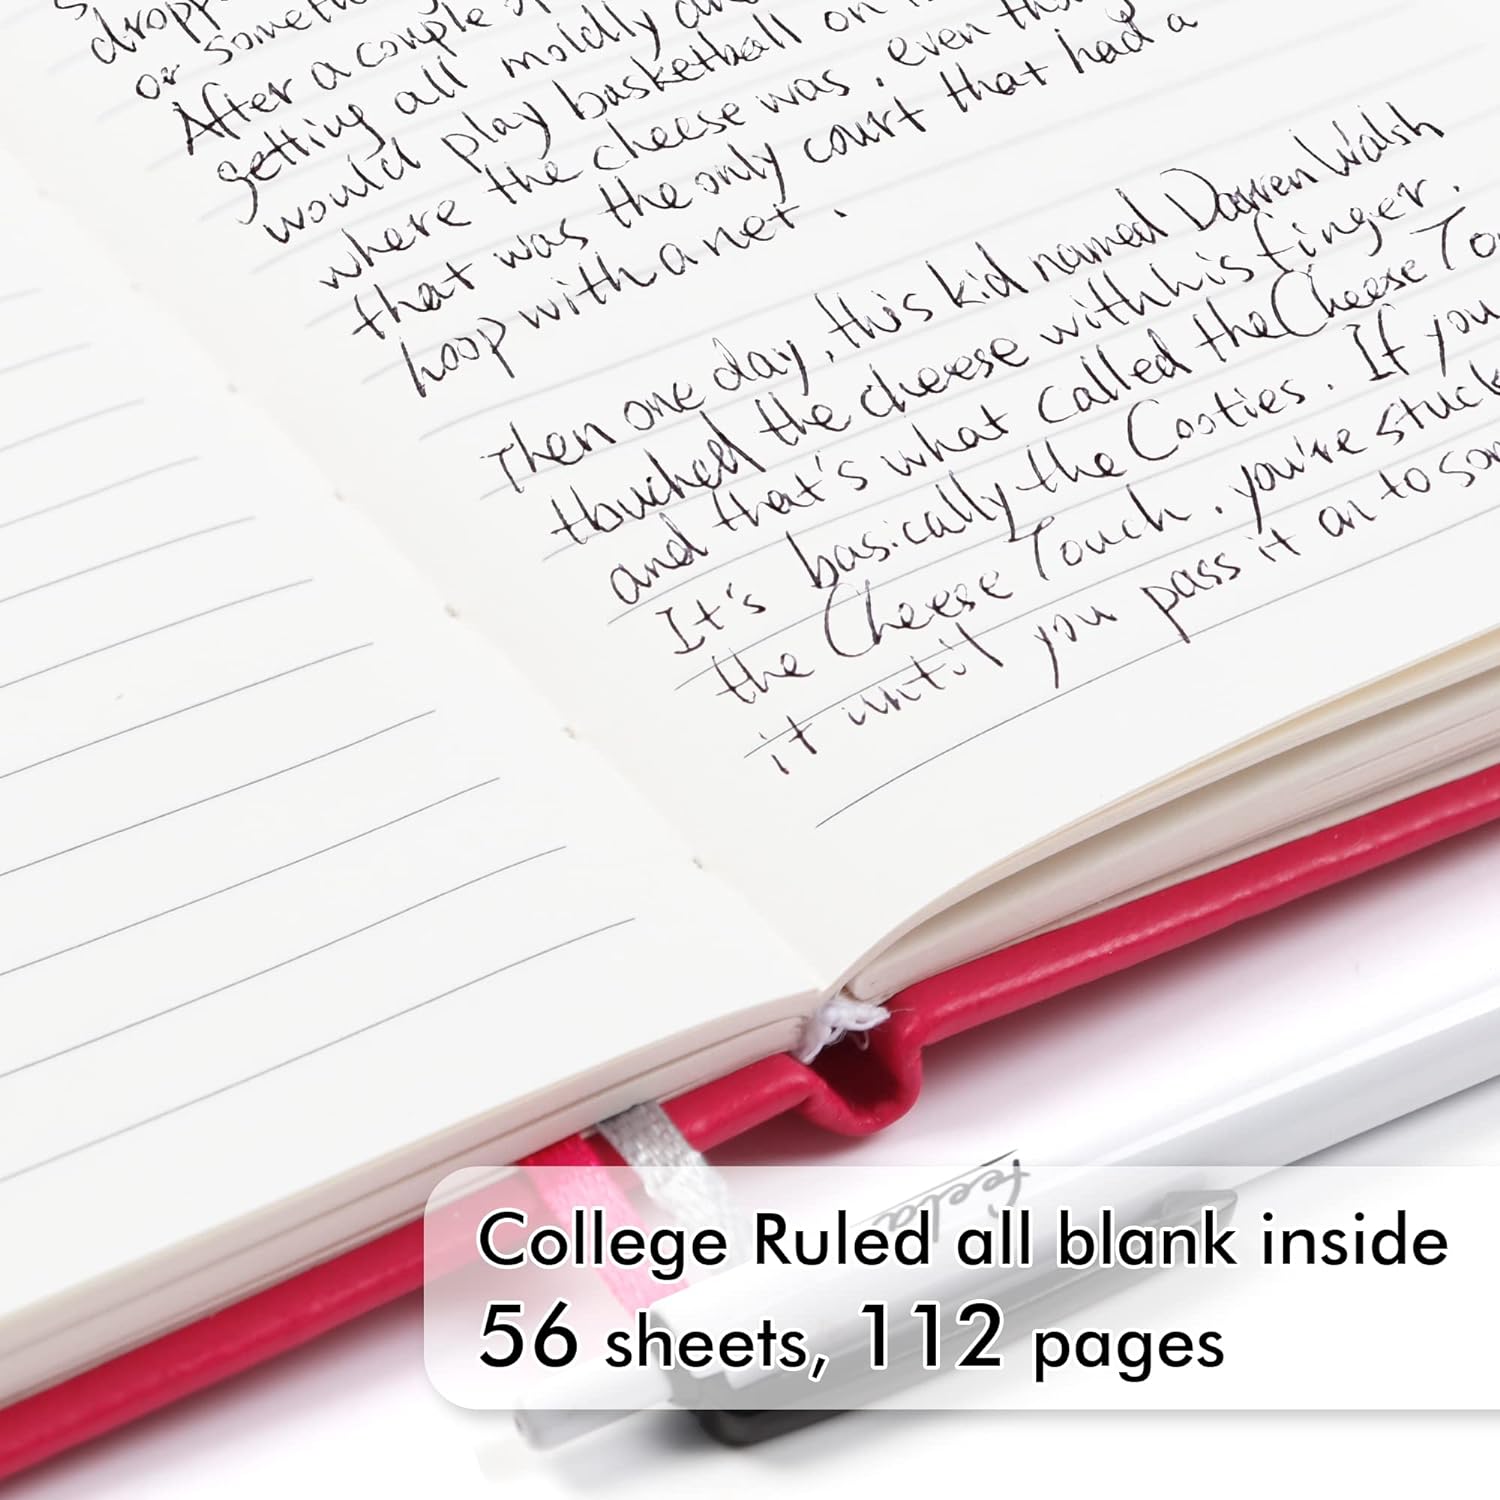 or someth
After a couple
getting all moldly an
would play basketball on
where the cheese was, even tho
that was the only court that had a
hoop with a net.
Then one day, this kid named Darren Walsh
thouched the cheese with his finger.
and that's what called the Cheese To
It's basically the Cooties. If you
the Cheese Touch, you're stuck
it until you pass it on to so
feela
College Ruled all blank inside
56 sheets, 112 pages